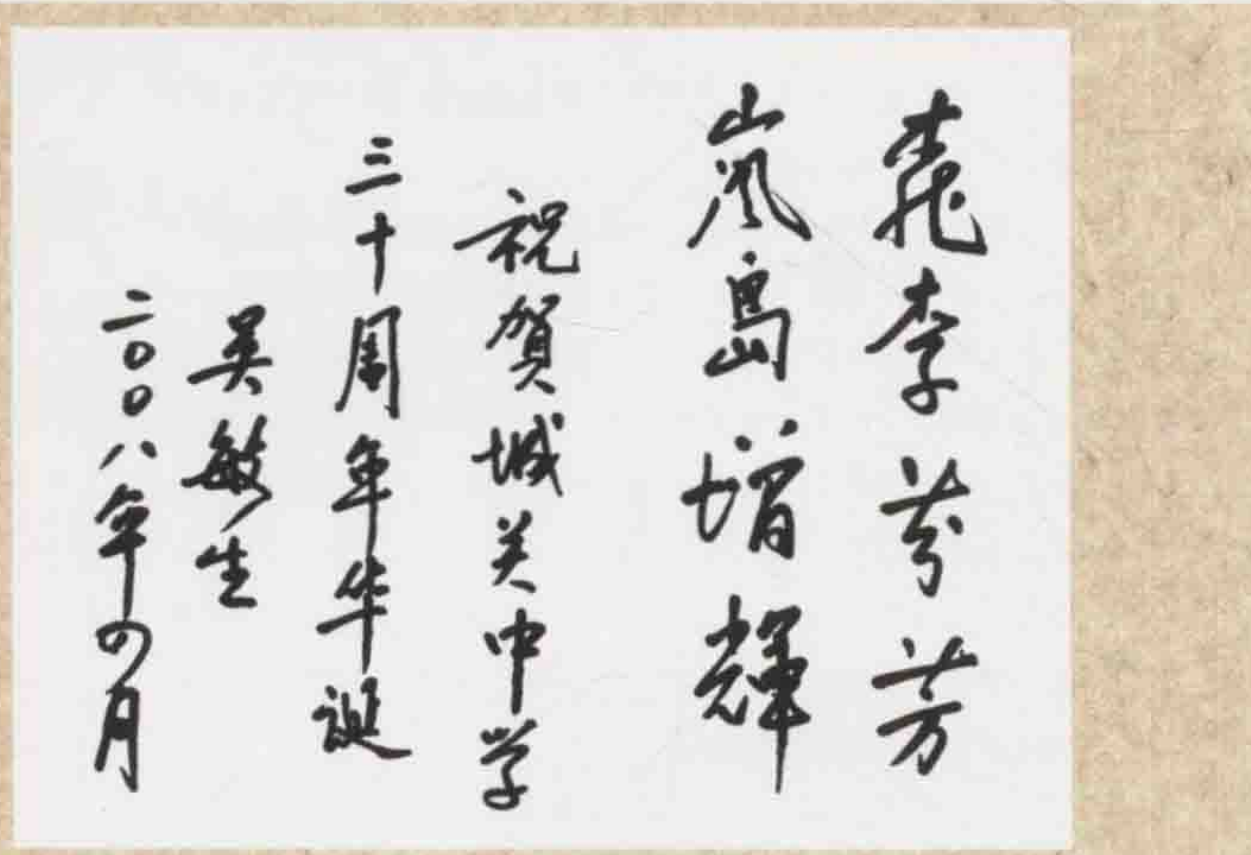 桃李芬芳
嵐島增輝
祝賀城关中学
三十周年华誕
吴敏生
二００八年四月